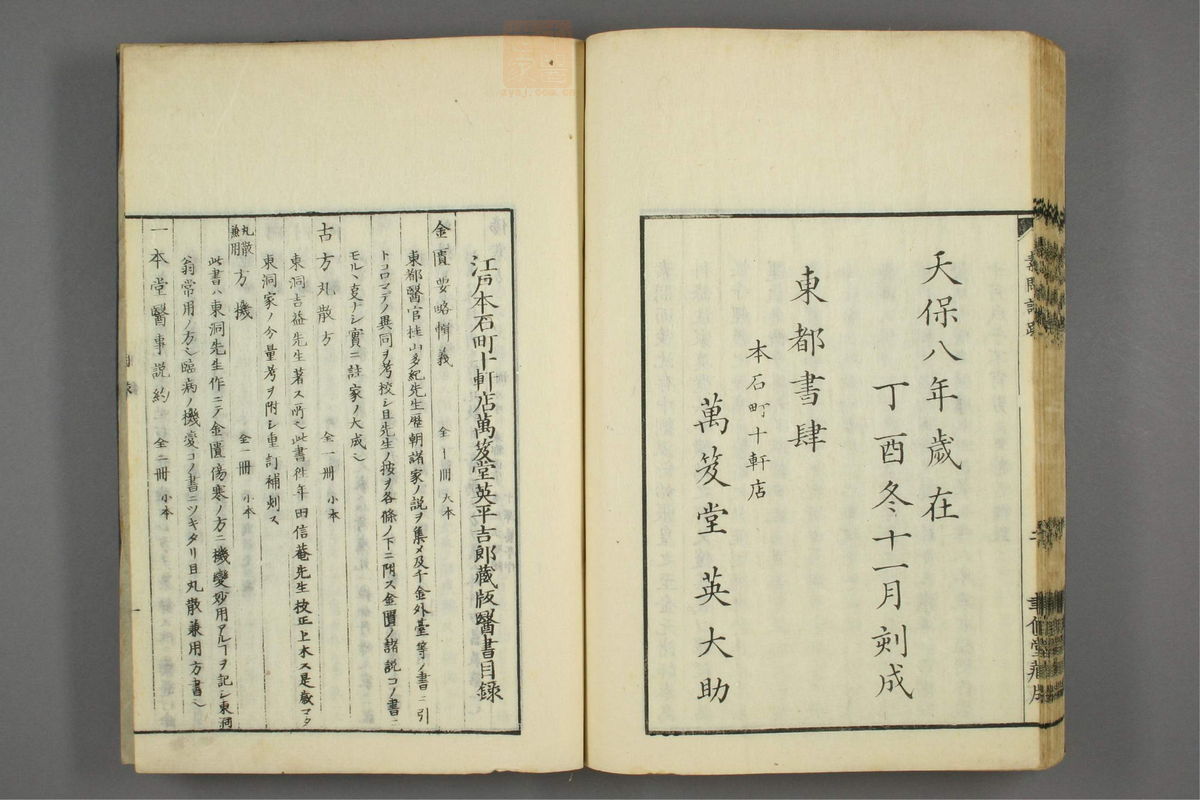 天保八年歲在
丁酉冬十一月刻成
東都書肆
本石町十軒店
萬笈堂 英大助
江戸本石町十軒店萬笈堂英平吉郎藏版醫書目錄
金匱要略輯義 全十冊 大本
東都醫官桂山多紀先生歷朝諸家ノ説ヲ集メ及千金外臺等ノ書ニ引
トコロマデノ異同ヲ考校シ且先生ノ按ヲ各條ノ下ニ附ス金匱ノ諸説コノ書ニ
モルヽ㕝ナシ實ニ註家ノ大成也
古方丸散方 全一冊 小本
東洞吉益先生著ス所也此書往年田信菴先生校正上木ス是歲マタ
東洞家ノ今量考ヲ附シ重訂補刻ス
丸散兼用方機 全一冊 小本
此書ハ東洞先生作ニテ金匱傷寒ノ方ニ機變妙用アルヿヲ記シ東洞
翁常用ノ方也臨病ノ機變コノ書ニツキタリ且丸散兼用方書也
一本堂醫事説約 全二冊 小本